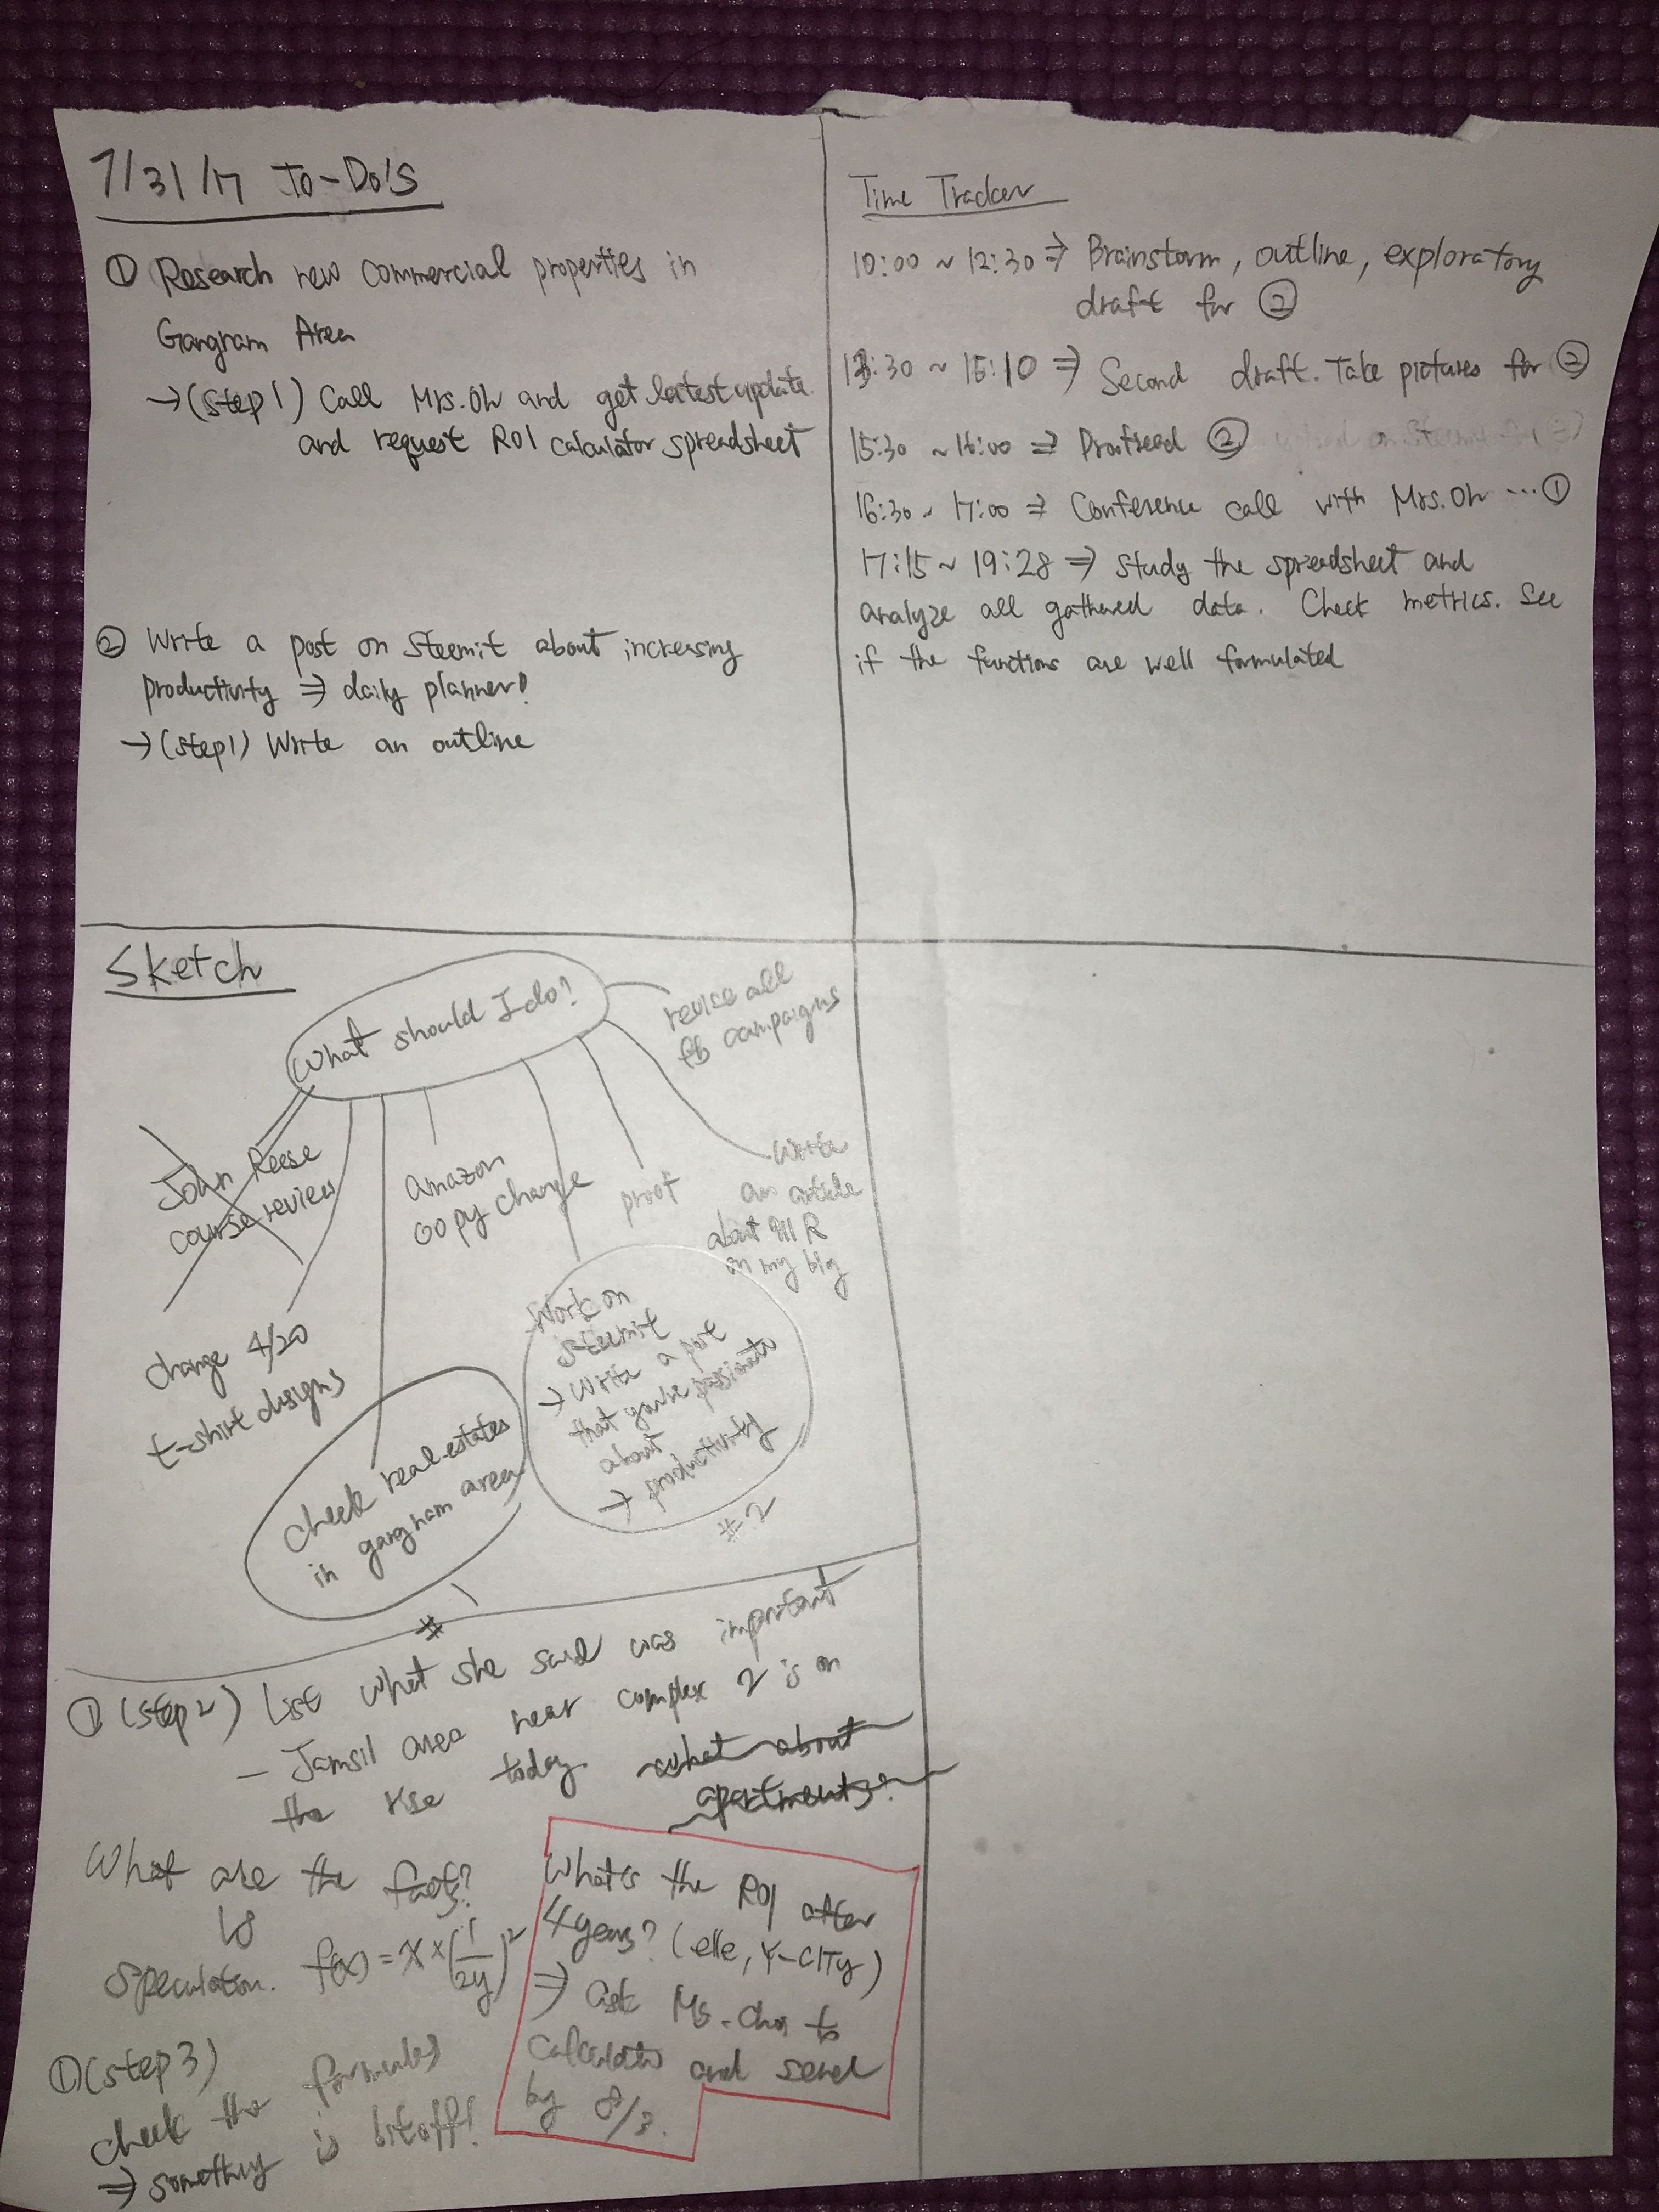 7/31/17 To-Do's
① Research new commercial properties in
Gangnam Area
→ (step 1) Call Mrs. Oh and get latest update
and request ROI calculator spreadsheet
② Write a post on Steemit about increasing
productivity ⇒ daily planner!
→ (step 1) Write an outline
Time Tracker
10:00 ~ 12:30 ⇒ Brainstorm, outline, exploratory
draft for ②
13:30 ~ 15:10 ⇒ Second draft. Take pictures for ②
15:30 ~ 16:00 ⇒ Proofread ②
16:30 ~ 17:00 ⇒ Conference call with Mrs. Oh ... ①
17:15 ~ 19:28 ⇒ Study the spreadsheet and
analyze all gathered data. Check metrics. See
if the functions are well formulated
Sketch
What should I do?
revise all
fb campaigns
John Reese
course review
amazon
copy change
proof
write
an article
about
on my blog
change 4/20
t-shirt designs
check real-estates
in gangnam area
#1
Work on
steemit
→ write a post
that you're passionate
about
→ productivity
#2
① (step 2) List what she said was important
- Jamsil area near complex 2 is on
the rise today what about
apartments?
What are the facts?
speculation. f(x) = x × (1/2y)²
What's the ROI after
4 years? (elle, Y-CITY)
⇒ ask Ms. Choi to
calculate and send
by 8/3.
① (step 3)
check the formulas
⇒ something is bit off!